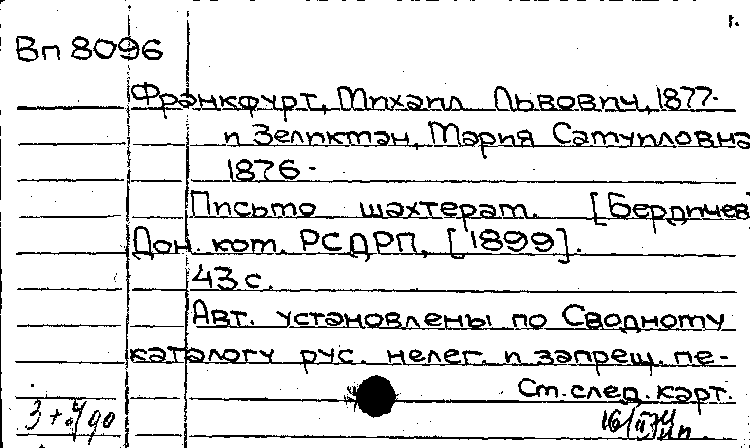 1.
Вп 8096
Франкфурт, Михаил Львович, 1877-
и Зеликман, Мария Самуиловна
1876-
Письмо шахтерам. [Бердичев
Дон. ком. РСДРП, [1899].
43 с.
Авт. установлены по Сводному
каталогу рус. нелег. и запрещ. пе-
См. след. карт.